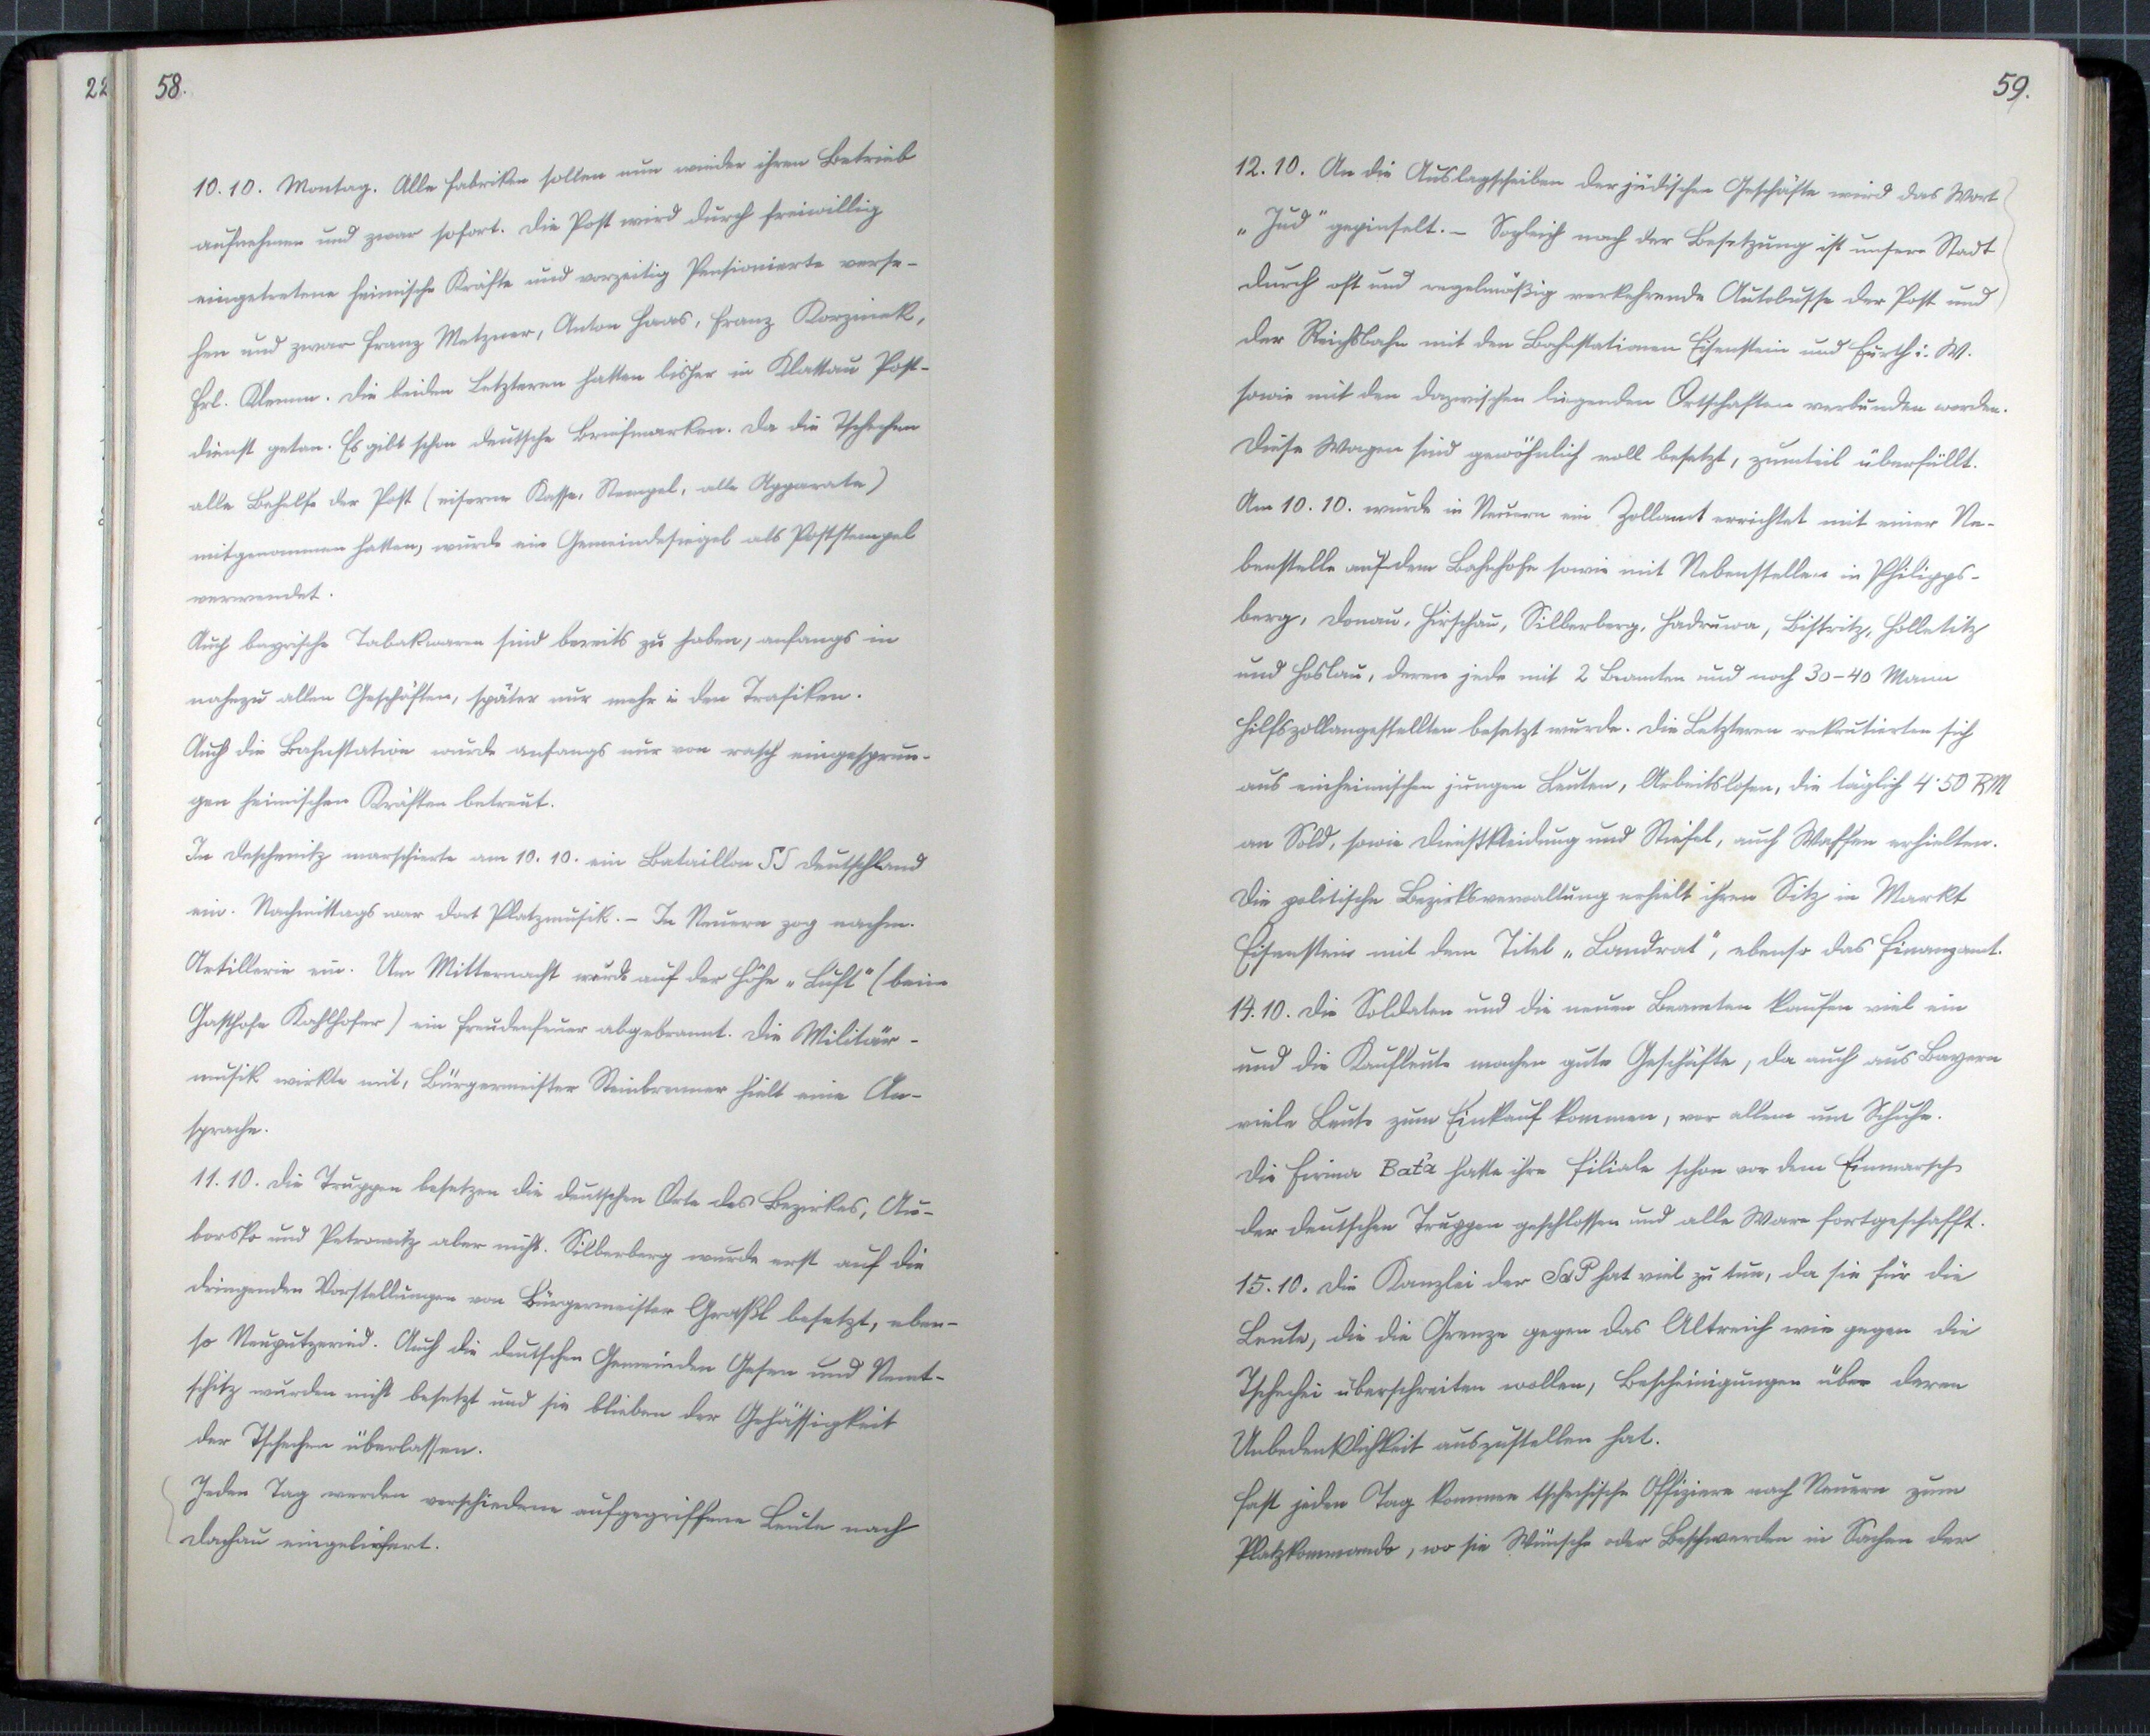 22
58.
10. 10. Montag. Alle Fabriken sollen nun wieder ihren Betrieb
aufnehmen und zwar sofort. Die Post wird durch freiwillig
eingetretene heimische Kräfte und vorzeitig Pensionierte verse-
hen und zwar Franz Metzner, Anton Haas, Franz Korzinek,
Frl. Klemm. Die beiden Letzteren hatten bisher in Klattau Post-
dienst getan. Es gibt schon deutsche Briefmarken. Da die Tschechen
alle Behelfe der Post (eiserne Kasse, Stempel, alle Apparate)
mitgenommen hatten, wurde ein Gemeindesiegel als Poststempel
verwendet.
Auch bayrische Tabakwaren sind bereits zu haben, anfangs in
nahezu allen Geschäften, später nur mehr in den Trafiken.
Auch die Bahnstation wurde anfangs nur von rasch eingesprun-
gen heimischen Kräften betreut.
In Deschenitz marschierte am 10. 10. ein Bataillon SS Deutschland
ein. Nachmittags war dort Platzmusik. – In Neuern zog nachm.
Artillerie ein. Um Mitternacht wurde auf der Höhe „Luft“ (beim
Gasthofe Kahlhofer) ein Freudenfeuer abgebrannt. Die Militär-
musik wirkte mit, Bürgermeister Steinbrenner hielt eine An-
sprache.
11. 10. Die Truppen besetzen die deutschen Orte des Bezirkes, Au-
borsko und Petrowitz aber nicht. Silberberg wurde erst auf die
dringenden Vorstellungen von Bürgermeister Graßl besetzt, eben-
so Neuputzeried. Auch die deutschen Gemeinden Gesen und Nemt-
schitz wurden nicht besetzt und sie blieben der Gehässigkeit
der Tschechen überlassen.
Jeden Tag werden verschiedene aufgegriffene Leute nach
Dachau eingeliefert.
59.
12. 10. An die Auslagscheiben der jüdischen Geschäfte wird das Wort
„Jud“ gepinselt. – Sogleich nach der Besetzung ist unsere Stadt
durch oft und regelmäßig verkehrende Autobusse der Post und
der Reichsbahn mit den Bahnstationen Eisenstein und Furth i. W.
sowie mit den dazwischen liegenden Ortschaften verbunden worden.
Diese Wagen sind gewöhnlich voll besetzt, zumteil überfüllt.
Am 10. 10. wurde in Neuern ein Zollamt errichtet mit einer Ne-
benstelle auf dem Bahnhofe sowie mit Nebenstellen in Philipps-
berg, Donau, Hirschau, Silberberg, Hadruwa, Bistritz, Holletitz
und Hoslau, deren jede mit 2 Beamten und noch 30-40 Mann
Hilfszollangestellten besetzt wurde. Die Letzteren rekrutierten sich
aus einheimischen jungen Leuten, Arbeitslosen, die täglich 4·50 RM
an Sold, sowie Dienstkleidung und Stiefel, auch Waffen erhielten.
Die politische Bezirksverwaltung erhielt ihren Sitz in Markt
Eisenstein mit dem Titel „Landrat“, ebenso das Finanzamt.
14. 10. Die Soldaten und die neuen Beamten kaufen viel ein
und die Kaufleute machen gute Geschäfte, da auch aus Bayern
viele Leute zum Einkauf kommen, vor allem um Schuhe.
Die Firma Bat'a hatte ihre Filiale schon vor dem Einmarsch
der deutschen Truppen geschlossen und alle Ware fortgeschafft.
15. 10. Die Kanzlei der SdP hat viel zu tun, da sie für die
Leute, die die Grenze gegen das Altreich wie gegen die
Tschechei überschreiten wollen, Bescheinigungen über deren
Unbedenklichkeit auszustellen hat.
Fast jeden Tag kommen tschechische Offiziere nach Neuern zum
Platzkommando, wo sie Wünsche oder Beschwerden in Sachen der